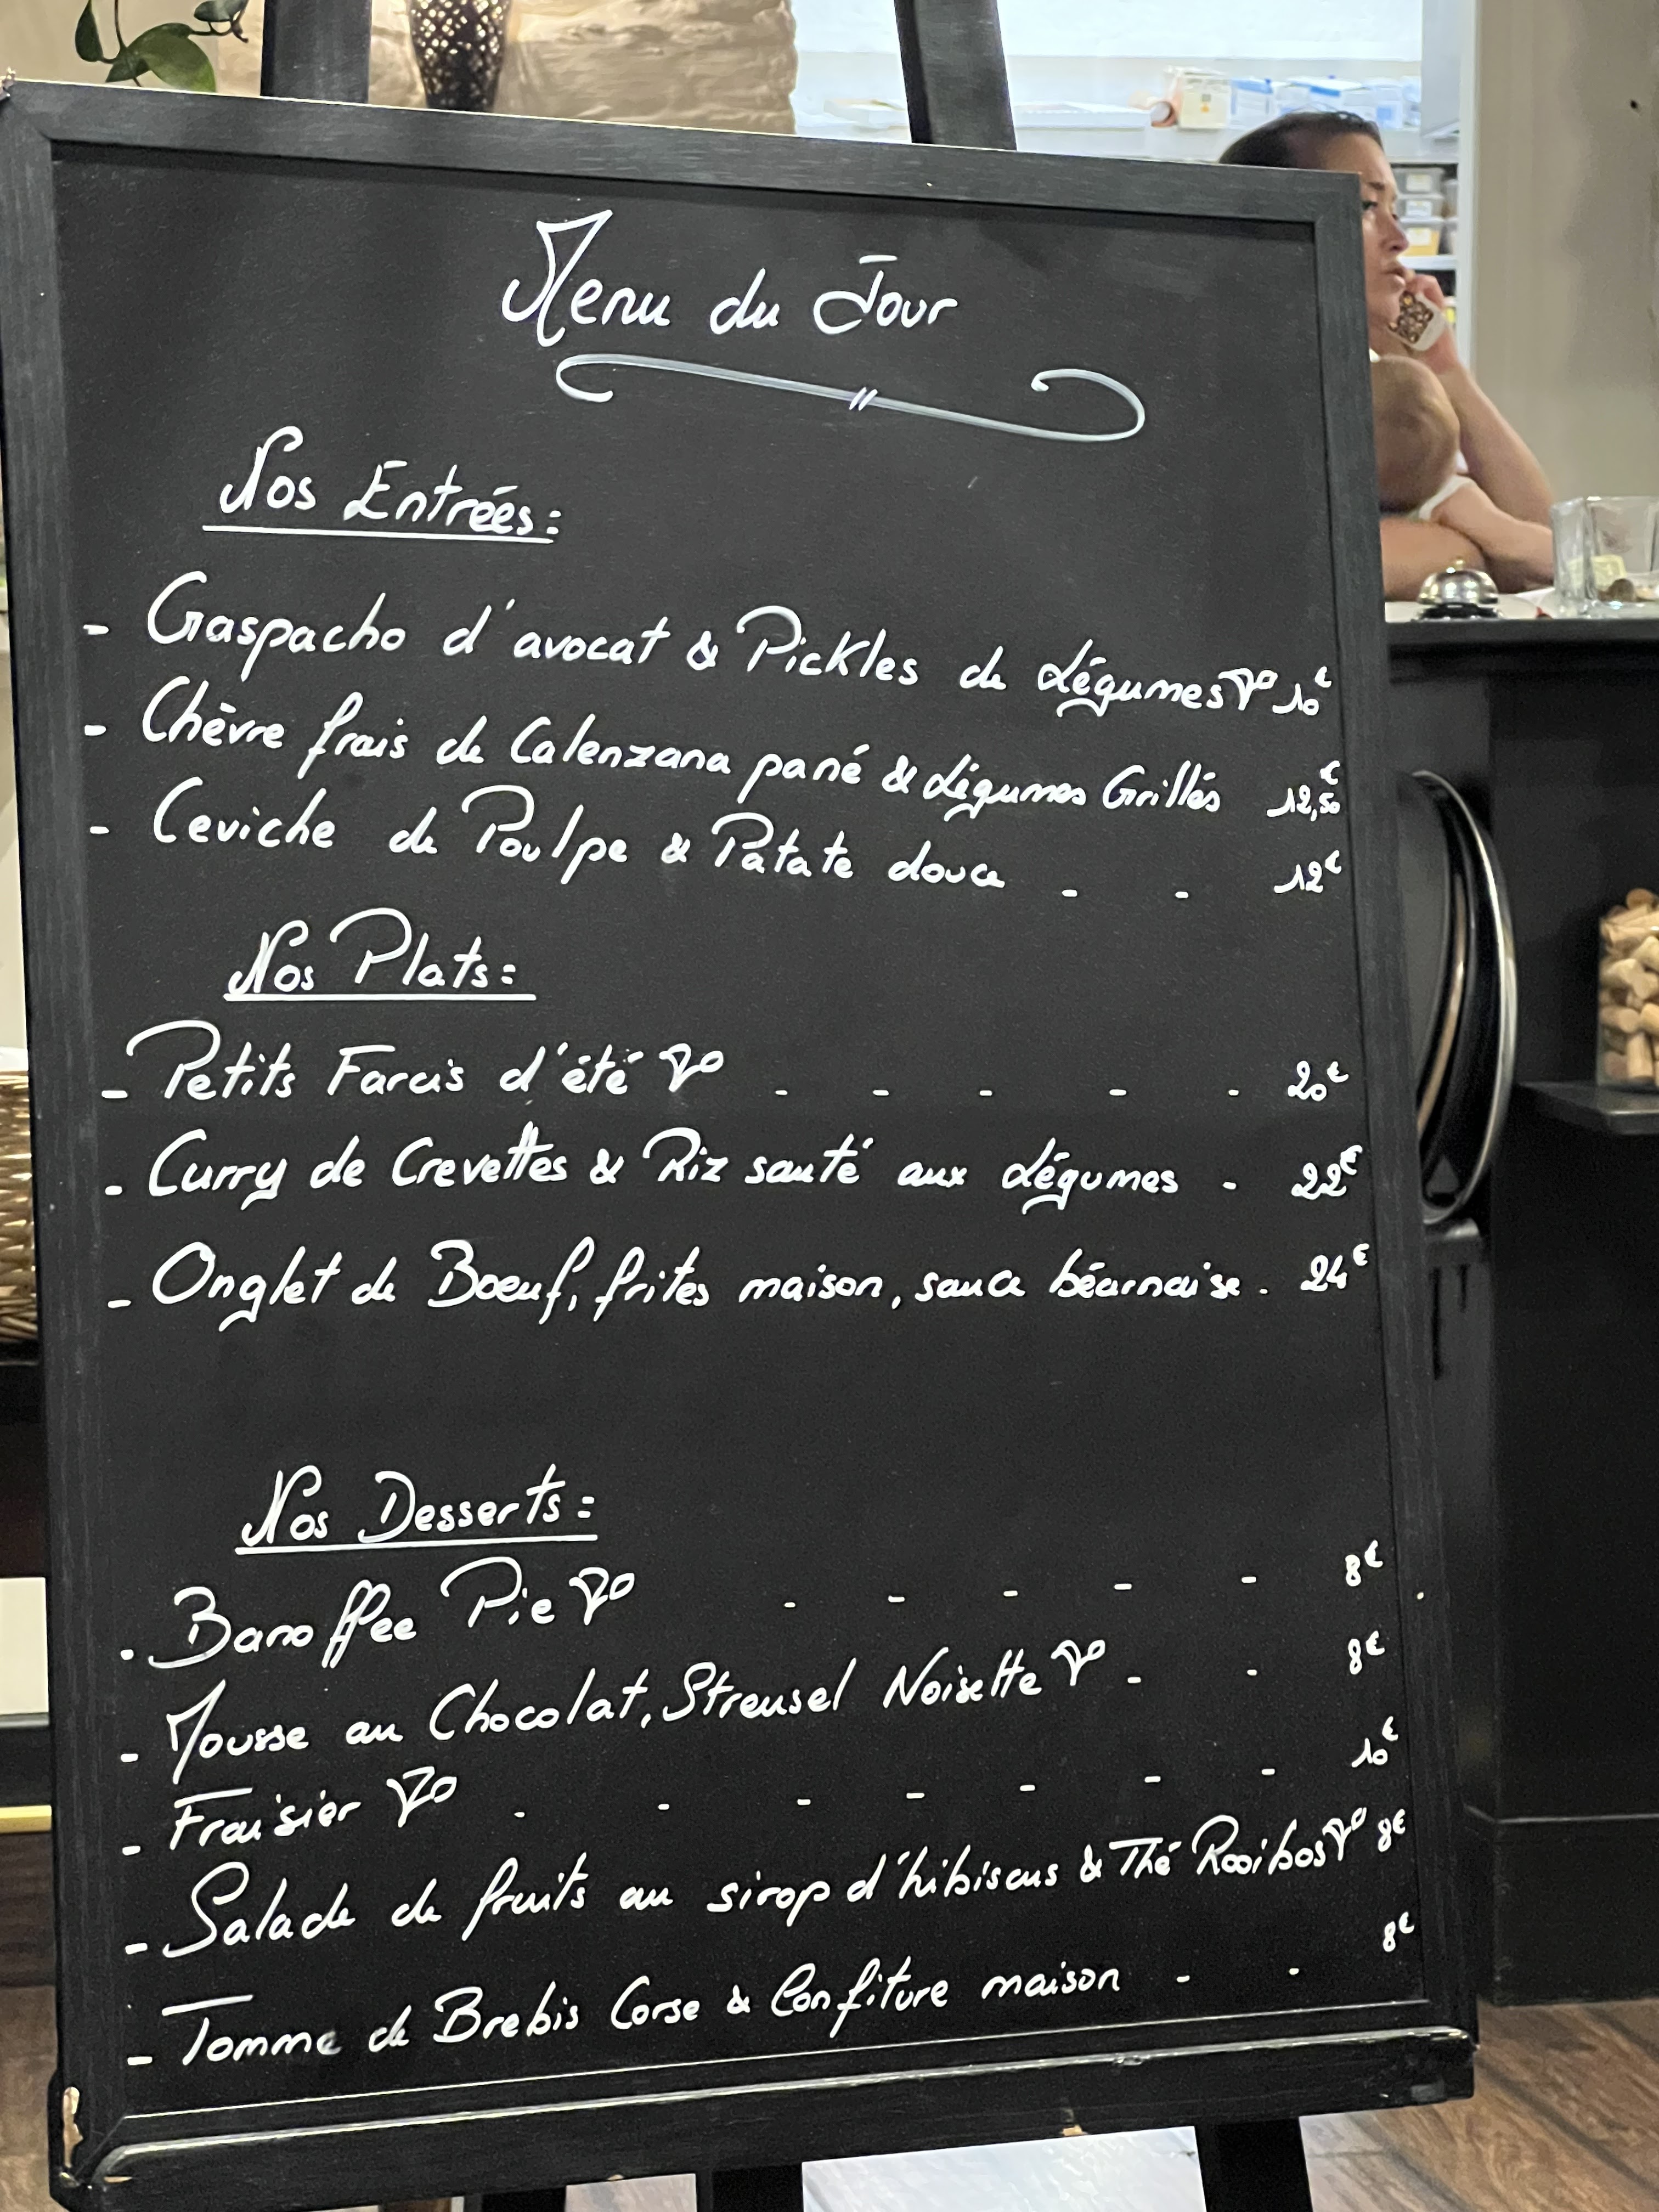 Menu du Jour
Nos Entrées:
- Gaspacho d'avocat & Pickles de Légumes 10€
- Chèvre frais de Calenzana pané & Légumes Grillés 12,50€
- Ceviche de Poulpe & Patate douce - - 12€
Nos Plats:
- Petits Farcis d'été - - - - - 20€
- Curry de Crevettes & Riz sauté aux Légumes - 22€
- Onglet de Boeuf, frites maison, sauce béarnaise - 24€
Nos Desserts:
- Banoffee Pie - - - - - 8€
- Mousse au Chocolat, Streusel Noisette - - 8€
- Fraisier - - - - - - - 10€
- Salade de fruits au sirop d'hibiscus & Thé Rooibos 8€
- Tomme de Brebis Corse & Confiture maison - - 8€